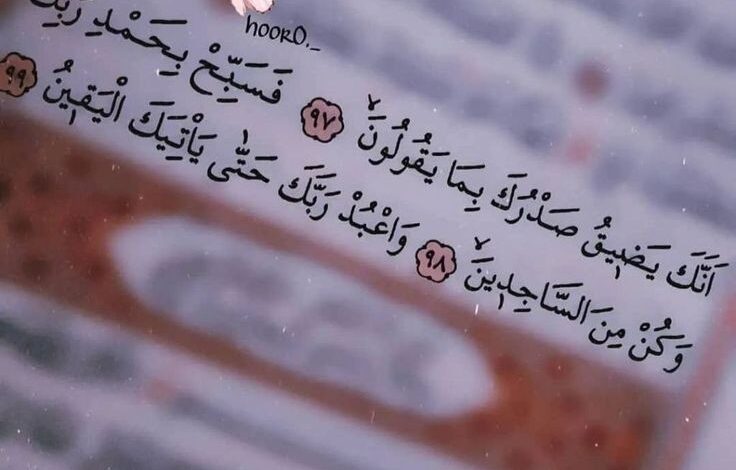 hoorO._
أَنَّكَ يَضِيقُ صَدْرُكَ بِمَا يَقُولُونَ ﴿٩٧﴾ فَسَبِّحْ بِحَمْدِ رَبِّكَ
وَكُنْ مِنَ السَّاجِدِينَ ﴿٩٨﴾ وَاعْبُدْ رَبَّكَ حَتّٰى يَأْتِيَكَ الْيَقِينُ ﴿٩٩﴾